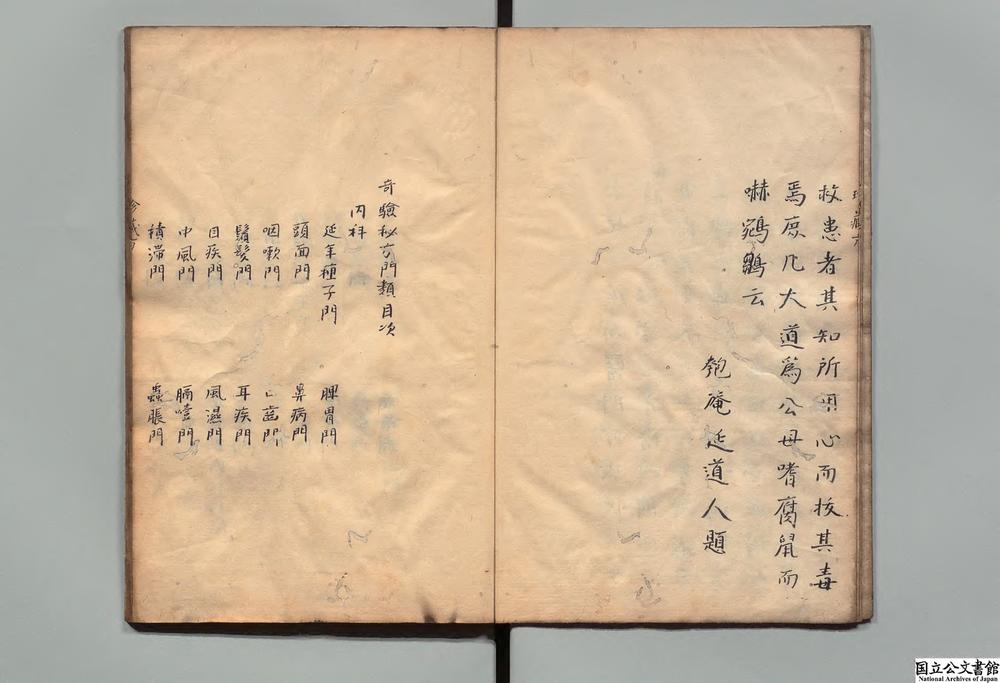 救患者其知所用心而拔其毒
焉庶几大道為公毋嗜腐鼠而
嚇鵷鶵云
匏庵延道人題
奇驗秘方門類目次
内科
延年種子門 脾胃門
頭面門 鼻病門
咽嗽門 口齒門
鬚髮門 耳疾門
目疾門 風濕門
中風門 膈噎門
積滯門 蟲脹門
国立公文書館
National Archives of Japan